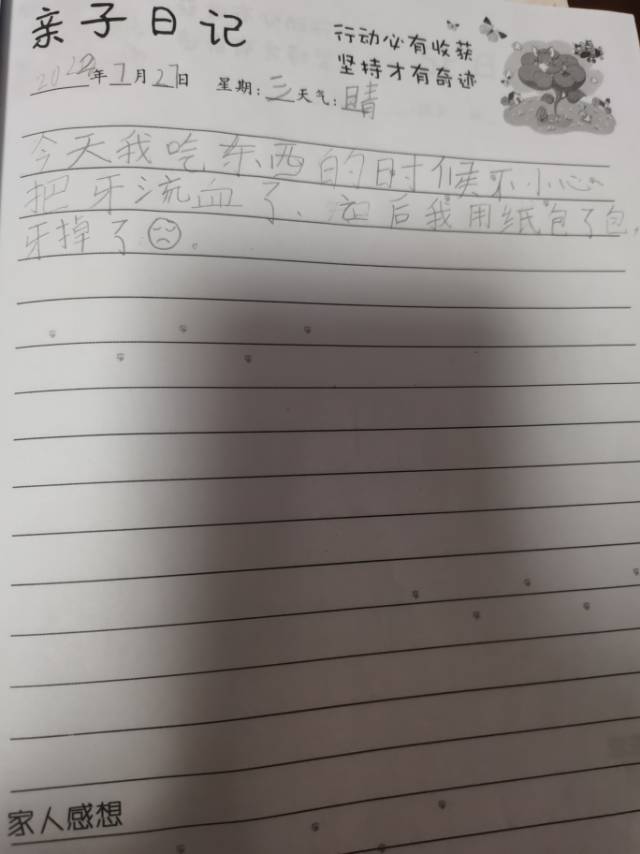 亲子日记
行动必有收获
坚持才有奇迹
2022年7月27日 星期:三天气:晴
今天我吃东西的时候不小心
把牙流血了、后我用纸包了包,
牙掉了☹。
家人感想